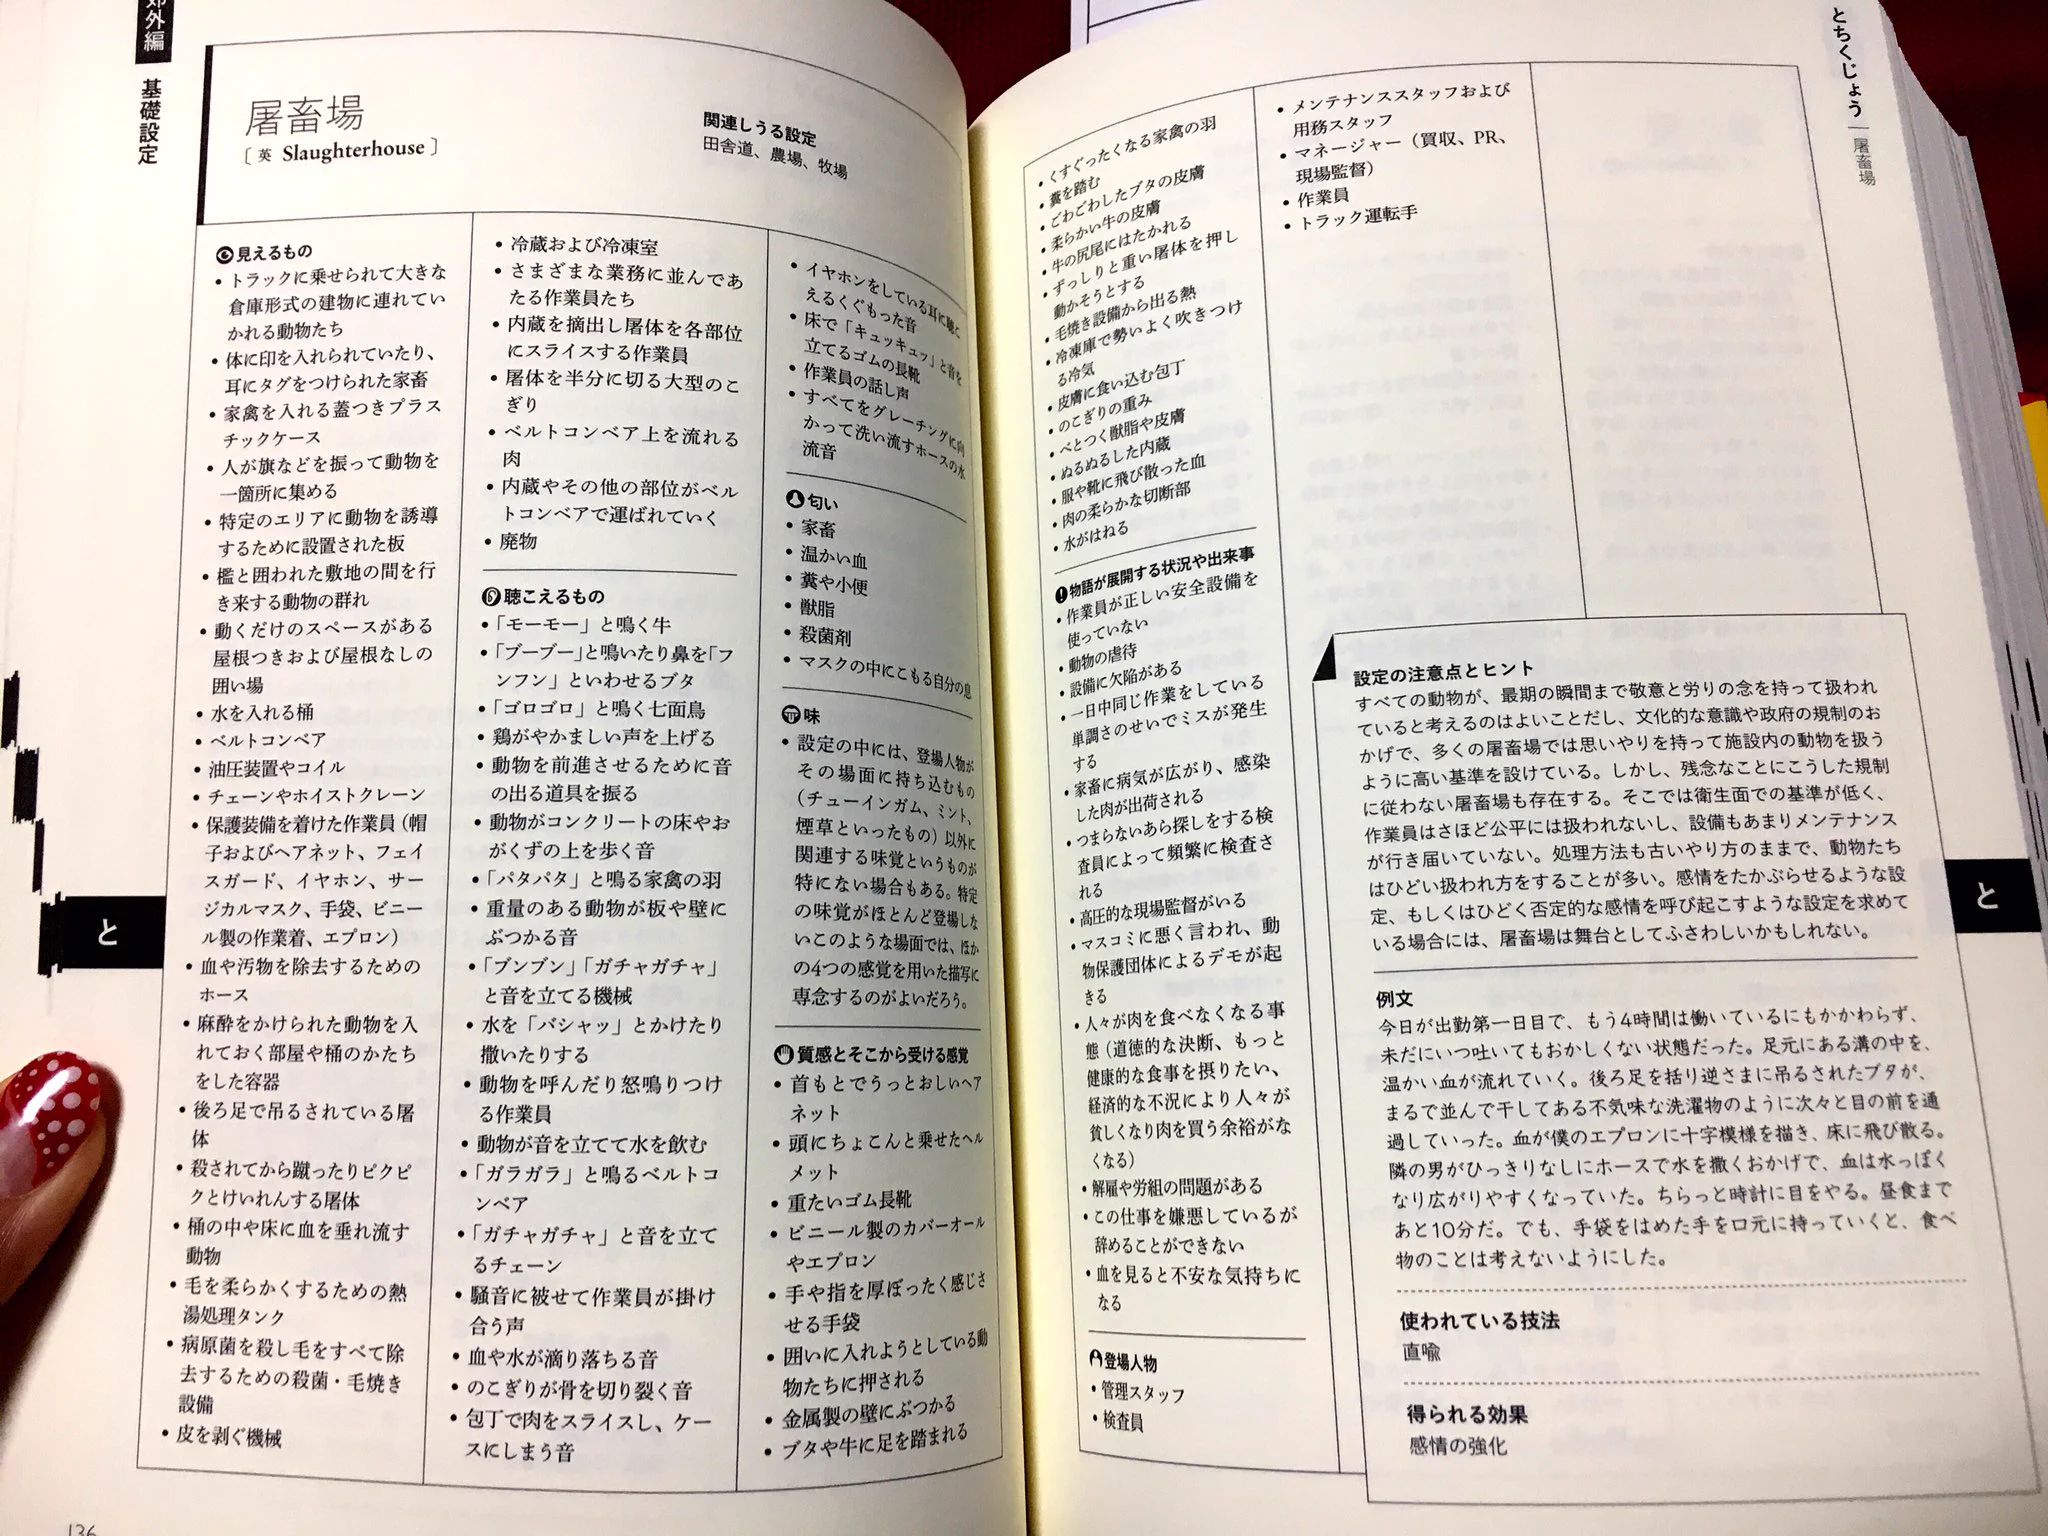 郊外編
基礎設定
屠畜場
［英 Slaughterhouse］
関連しうる設定
田舎道、農場、牧場
見えるもの
• トラックに乗せられて大きな
倉庫形式の建物に連れてい
かれる動物たち
• 体に印を入れられていたり、
耳にタグをつけられた家畜
• 家禽を入れる蓋つきプラス
チックケース
• 人が旗などを振って動物を
一箇所に集める
• 特定のエリアに動物を誘導
するために設置された板
• 檻と囲われた敷地の間を行
き来する動物の群れ
• 動くだけのスペースがある
屋根つきおよび屋根なしの
囲い場
• 水を入れる桶
• ベルトコンベア
• 油圧装置やコイル
• チェーンやホイストクレーン
• 保護装備を着けた作業員（帽
子およびヘアネット、フェイ
スガード、イヤホン、サー
ジカルマスク、手袋、ビニー
ル製の作業着、エプロン）
• 血や汚物を除去するための
ホース
• 麻酔をかけられた動物を入
れておく部屋や桶のかたち
をした容器
• 後ろ足で吊るされている屠
体
• 殺されてから蹴ったりピクピ
クとけいれんする屠体
• 桶の中や床に血を垂れ流す
動物
• 毛を柔らかくするための熱
湯処理タンク
• 病原菌を殺し毛をすべて除
去するための殺菌・毛焼き
設備
• 皮を剥ぐ機械
• 冷蔵および冷凍室
• さまざまな業務に並んであ
たる作業員たち
• 内蔵を摘出し屠体を各部位
にスライスする作業員
• 屠体を半分に切る大型のこ
ぎり
• ベルトコンベア上を流れる
肉
• 内蔵やその他の部位がベル
トコンベアで運ばれていく
• 廃物
聴こえるもの
• 「モーモー」と鳴く牛
• 「ブーブー」と鳴いたり鼻を「フ
ンフン」といわせるブタ
• 「ゴロゴロ」と鳴く七面鳥
• 鶏がやかましい声を上げる
• 動物を前進させるために音
の出る道具を振る
• 動物がコンクリートの床やお
がくずの上を歩く音
• 「パタパタ」と鳴る家禽の羽
• 重量のある動物が板や壁に
ぶつかる音
• 「ブンブン」「ガチャガチャ」
と音を立てる機械
• 水を「バシャッ」とかけたり
撒いたりする
• 動物を呼んだり怒鳴りつけ
る作業員
• 動物が音を立てて水を飲む
• 「ガラガラ」と鳴るベルトコ
ンベア
• 「ガチャガチャ」と音を立て
るチェーン
• 騒音に被せて作業員が掛け
合う声
• 血や水が滴り落ちる音
• のこぎりが骨を切り裂く音
• 包丁で肉をスライスし、ケー
スにしまう音
• イヤホンをしている耳に聴こ
えるくぐもった音
• 床で「キュッキュッ」と音を
立てるゴムの長靴
• 作業員の話し声
• すべてをグレーチングに向
かって洗い流すホースの水
流音
匂い
• 家畜
• 温かい血
• 糞や小便
• 獣脂
• 殺菌剤
• マスクの中にこもる自分の息
味
• 設定の中には、登場人物が
その場面に持ち込むもの
（チューインガム、ミント、
煙草といったもの）以外に
関連する味覚というものが
特にない場合もある。特定
の味覚がほとんど登場しな
いこのような場面では、ほか
の4つの感覚を用いた描写に
専念するのがよいだろう。
質感とそこから受ける感覚
• 首もとでうっとおしいヘア
ネット
• 頭にちょこんと乗せたヘル
メット
• 重たいゴム長靴
• ビニール製のカバーオール
やエプロン
• 手や指を厚ぼったく感じさ
せる手袋
• 囲いに入れようとしている動
物たちに押される
• 金属製の壁にぶつかる
• ブタや牛に足を踏まれる
136
• くすぐったくなる家禽の羽
• 糞を踏む
• ごわごわしたブタの皮膚
• 柔らかい牛の皮膚
• 牛の尻尾にはたかれる
• ずっしりと重い屠体を押し
動かそうとする
• 毛焼き設備から出る熱
• 冷凍庫で勢いよく吹きつけ
る冷気
• 皮膚に食い込む包丁
• のこぎりの重み
• べとつく獣脂や皮膚
• ぬるぬるした内蔵
• 服や靴に飛び散った血
• 肉の柔らかな切断部
• 水がはねる
物語が展開する状況や出来事
• 作業員が正しい安全設備を
使っていない
• 動物の虐待
• 設備に欠陥がある
• 一日中同じ作業をしている
単調さのせいでミスが発生
する
• 家畜に病気が広がり、感染
した肉が出荷される
• つまらないあら探しをする検
査員によって頻繁に検査さ
れる
• 高圧的な現場監督がいる
• マスコミに悪く言われ、動
物保護団体によるデモが起
きる
• 人々が肉を食べなくなる事
態（道徳的な決断、もっと
健康的な食事を摂りたい、
経済的な不況により人々が
貧しくなり肉を買う余裕がな
くなる）
• 解雇や労組の問題がある
• この仕事を嫌悪しているが
辞めることができない
• 血を見ると不安な気持ちに
なる
登場人物
• 管理スタッフ
• 検査員
• メンテナンススタッフおよび
用務スタッフ
• マネージャー（買収、PR、
現場監督）
• 作業員
• トラック運転手
設定の注意点とヒント
すべての動物が、最期の瞬間まで敬意と労りの念を持って扱われ
ていると考えるのはよいことだし、文化的な意識や政府の規制のお
かげで、多くの屠畜場では思いやりを持って施設内の動物を扱う
ように高い基準を設けている。しかし、残念なことにこうした規制
に従わない屠畜場も存在する。そこでは衛生面での基準が低く、
作業員はさほど公平には扱われないし、設備もあまりメンテナンス
が行き届いていない。処理方法も古いやり方のままで、動物たち
はひどい扱われ方をすることが多い。感情をたかぶらせるような設
定、もしくはひどく否定的な感情を呼び起こすような設定を求めて
いる場合には、屠畜場は舞台としてふさわしいかもしれない。
例文
今日が出勤第一日目で、もう4時間は働いているにもかかわらず、
未だにいつ吐いてもおかしくない状態だった。足元にある溝の中を、
温かい血が流れていく。後ろ足を括り逆さまに吊るされたブタが、
まるで並んで干してある不気味な洗濯物のように次々と目の前を通
過していった。血が僕のエプロンに十字模様を描き、床に飛び散る。
隣の男がひっきりなしにホースで水を撒くおかげで、血は水っぽく
なり広がりやすくなっていた。ちらっと時計に目をやる。昼食まで
あと10分だ。でも、手袋をはめた手を口元に持っていくと、食べ
物のことは考えないようにした。
使われている技法
直喩
得られる効果
感情の強化
とちくじょう
屠畜場
と
と